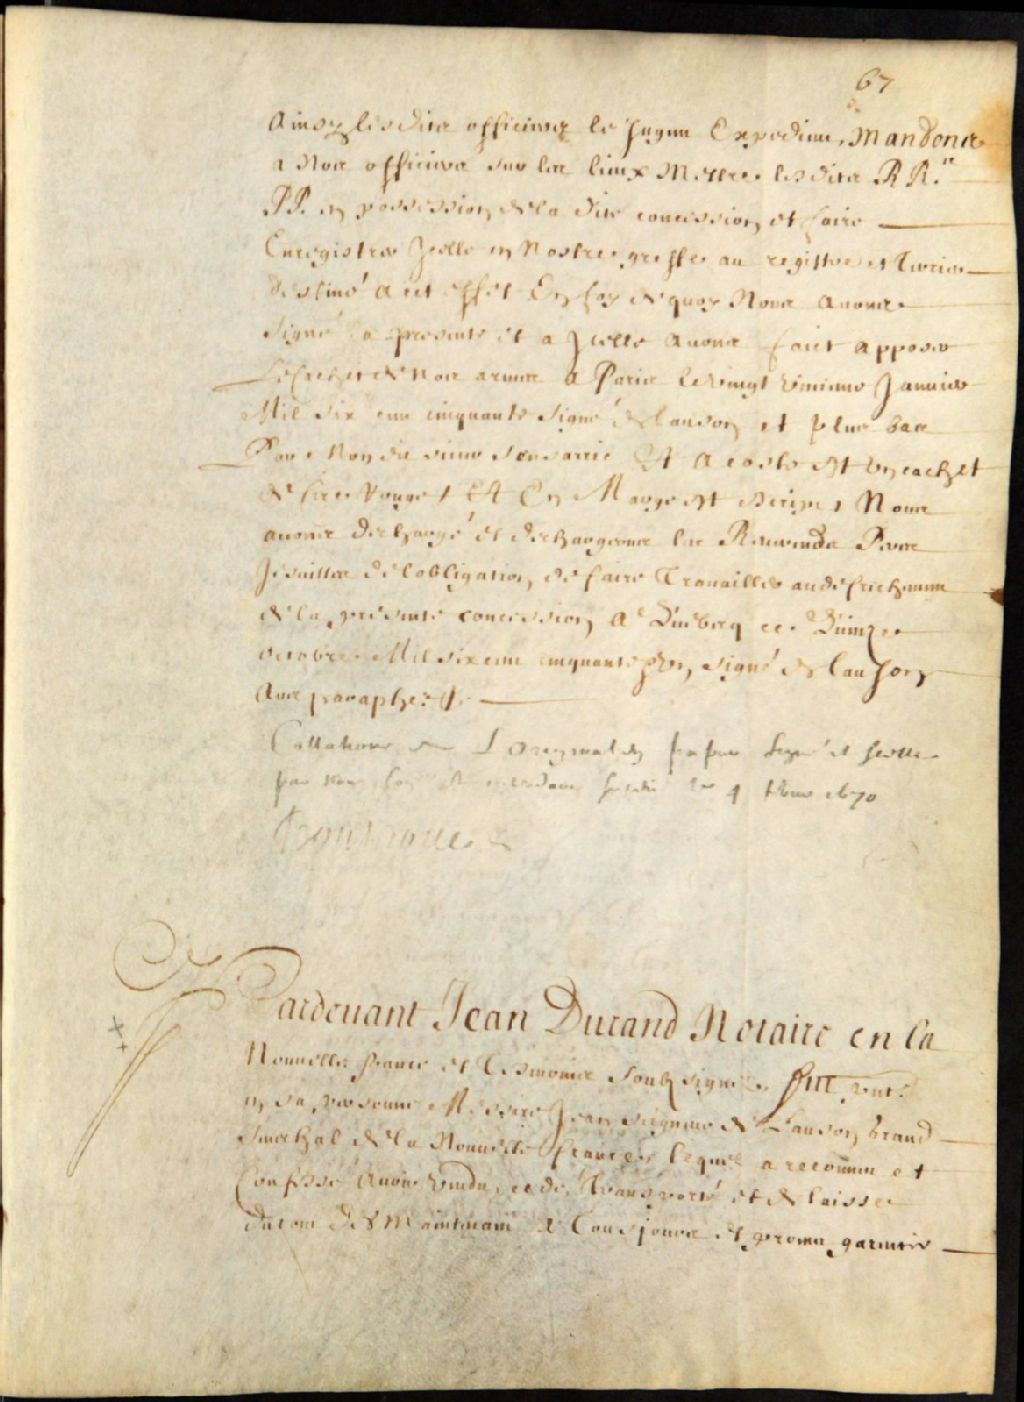 67
Ainsy lesdits officiers le jugeront Expedient, Mandons
a Nos officiers sur les lieux Mettre lesdits RR.
PP. en possession de la dite concession et faire
Enregistrer Jcelle en Nostre greffe au registre et terrier
destiné a cet effet En foy de quoy Nous auons
signé la presente et a Jcelle auons faict apposer
Le cachet de Nos armes a Paris le vingt Janvier
Mil six cens cinquante signé de lauson et plus bas
Par Mondit sieur Et a costé est un cachet
de sire Rouge, Et En Marge est escript, Nous
auons dechargé et dechargeons les Reuerends Peres
Jesuittes de l'obligation, de faire trauailler au defrichement
de la presente concession, A Quebecq ce Quinze
octobre Mil six cens cinquante signé de Lauson
auec paraphe.
Collationné a L'original en papier par
par nous 4 1670
Pardeuant Jean Durand Notaire en la
Nouuelle france et tesmoins soubsignés, fut pnt.
en sa personne Messire Jean seigneur de Lauson Grand
senechal de la Nouuelle france, lequel a reconnu et
Confessé auoir vendu, cedé, transporté et delaissé
du tout des Maintenant a tousjours et promis garantir